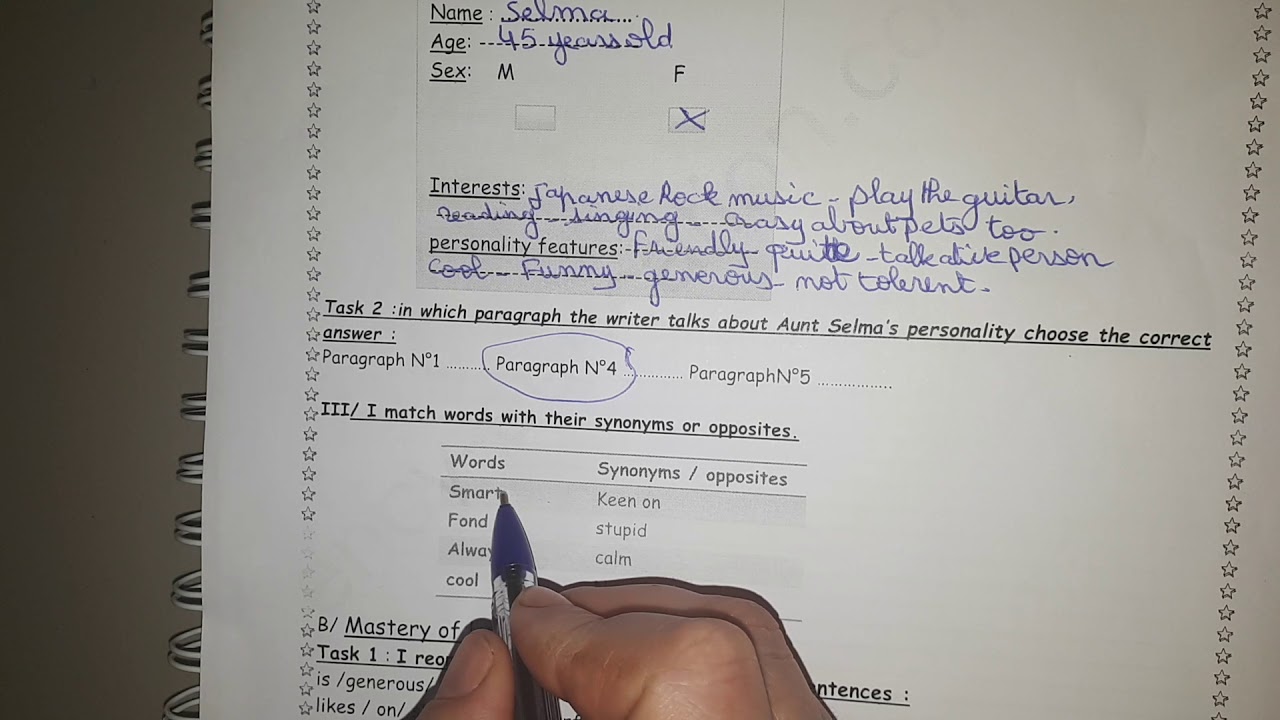 Name : Selma
Age: 45 years old
Sex: M F
X
Interests: Japanese Rock music - play the guitar,
reading - singing - crasy about pets too.
personality features: Friendly - - talkative person
Cool - Funny - generous - not tolerent.
Task 2 :in which paragraph the writer talks about Aunt Selma's personality choose the correct
answer :
Paragraph N°1 .......... Paragraph N°4 .............. ParagraphN°5 .................
III/ I match words with their synonyms or opposites.
Words Synonyms / opposites
Smart Keen on
Fond stupid
calm
cool
B/ Mastery of
Task 1 : I ntences :
is /generous/
likes / on/